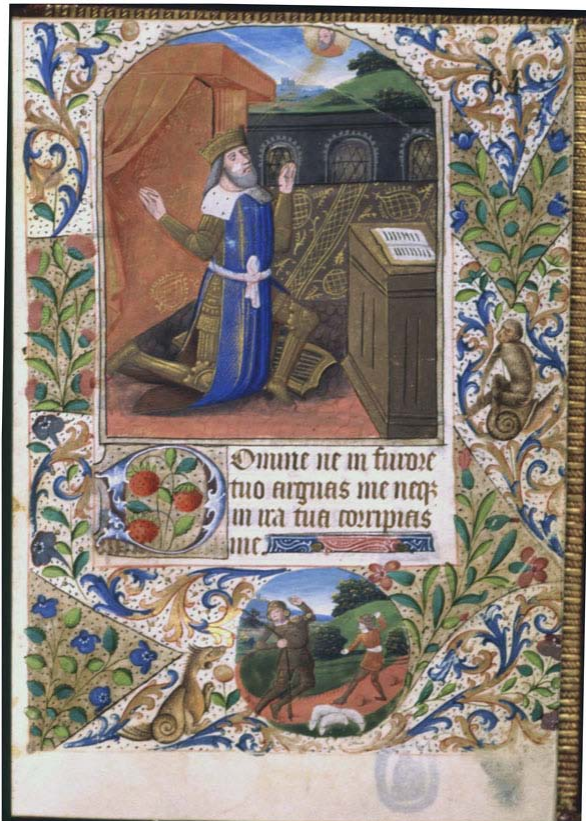 64
Domine ne in furore
tuo arguas me neqz
in ira tua corripias
me